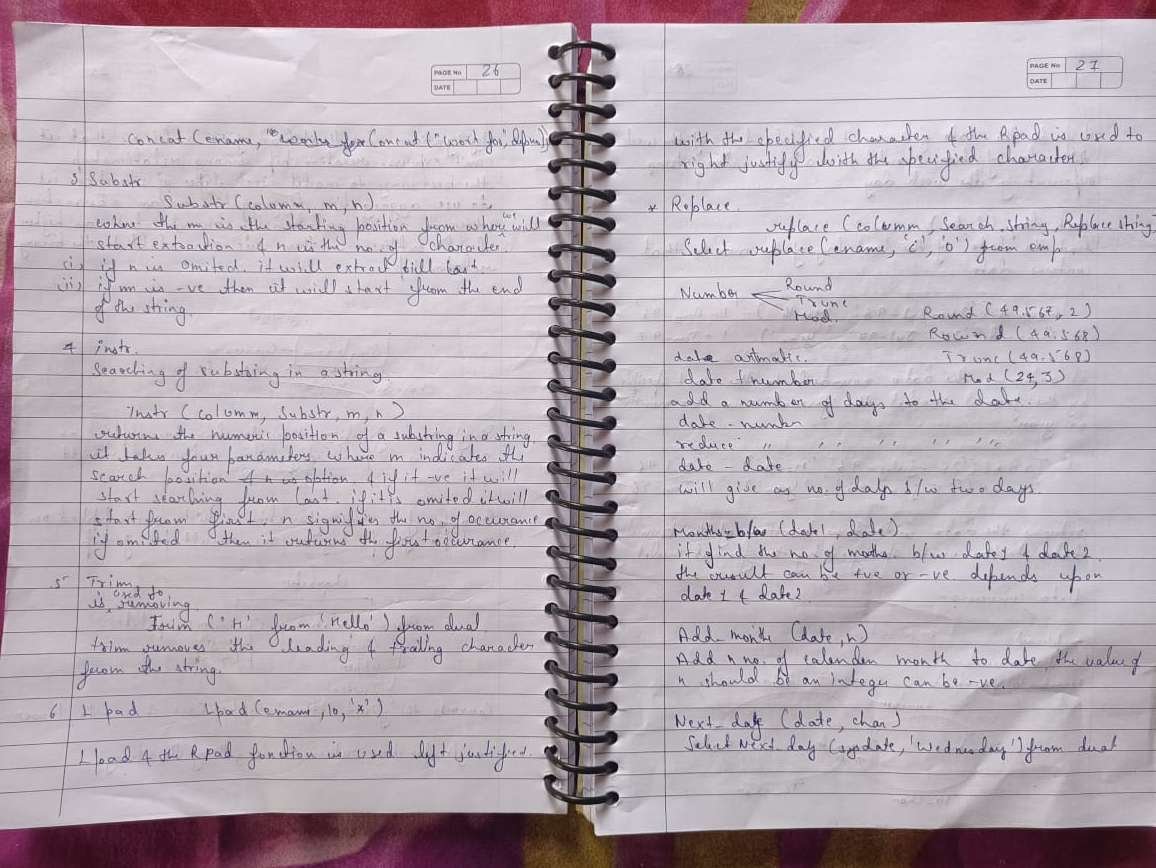 PAGE No 26
DATE
Concat (ename, Concat ("work for",
3 Substr
Substr (column, m, n)
where the m is the starting position from where we will
start extraction & n is the no. of character.
(i) if n is omited. it will extract till last
(ii) if m is -ve then it will start from the end
of the string.
4 instr.
Searching of substring in a string
Instr (column, Substr, m, n)
returns the numeric position of a substring in a string
it takes four parameters where m indicates the
search position & n is option & if it -ve it will
start searching from last. if it is omited it will
start from first. n signifies the no. of occurance
if omited then it returns the first occurance.
5 Trim
is used to removing
Trim ('H' from 'Hello') from dual
trim removes the leading & trailing character
from the string.
6 L pad Lpad (emame, 10, '*')
Lpad & the Rpad function is used left justified.
PAGE No 27
DATE
with the specified character & the Rpad is used to
right justify with the specified character.
* Replace
replace (column, Search String, Replace string)
Select replace (ename, 'c', 'o') from emp.
Number Round
Trunc
Mod. Round (49.567, 2)
Round (49.568)
date aritmatic. Trunc (49.568)
date + number Mod (24,3)
add a number of days to the date.
date - number
reduce " " " " " "
date - date.
will give as no. of days b/w two days.
Months- b/w (date1, date)
it find the no. of months b/w date1 & date2.
the result can be +ve or -ve depends upon
date 1 & date2
Add- month (date, n)
Add n no. of calenden month to date, the value of
n should be an integer can be -ve.
Next day (date, char)
Select Next-day (sysdate, 'Wednesday') from dual